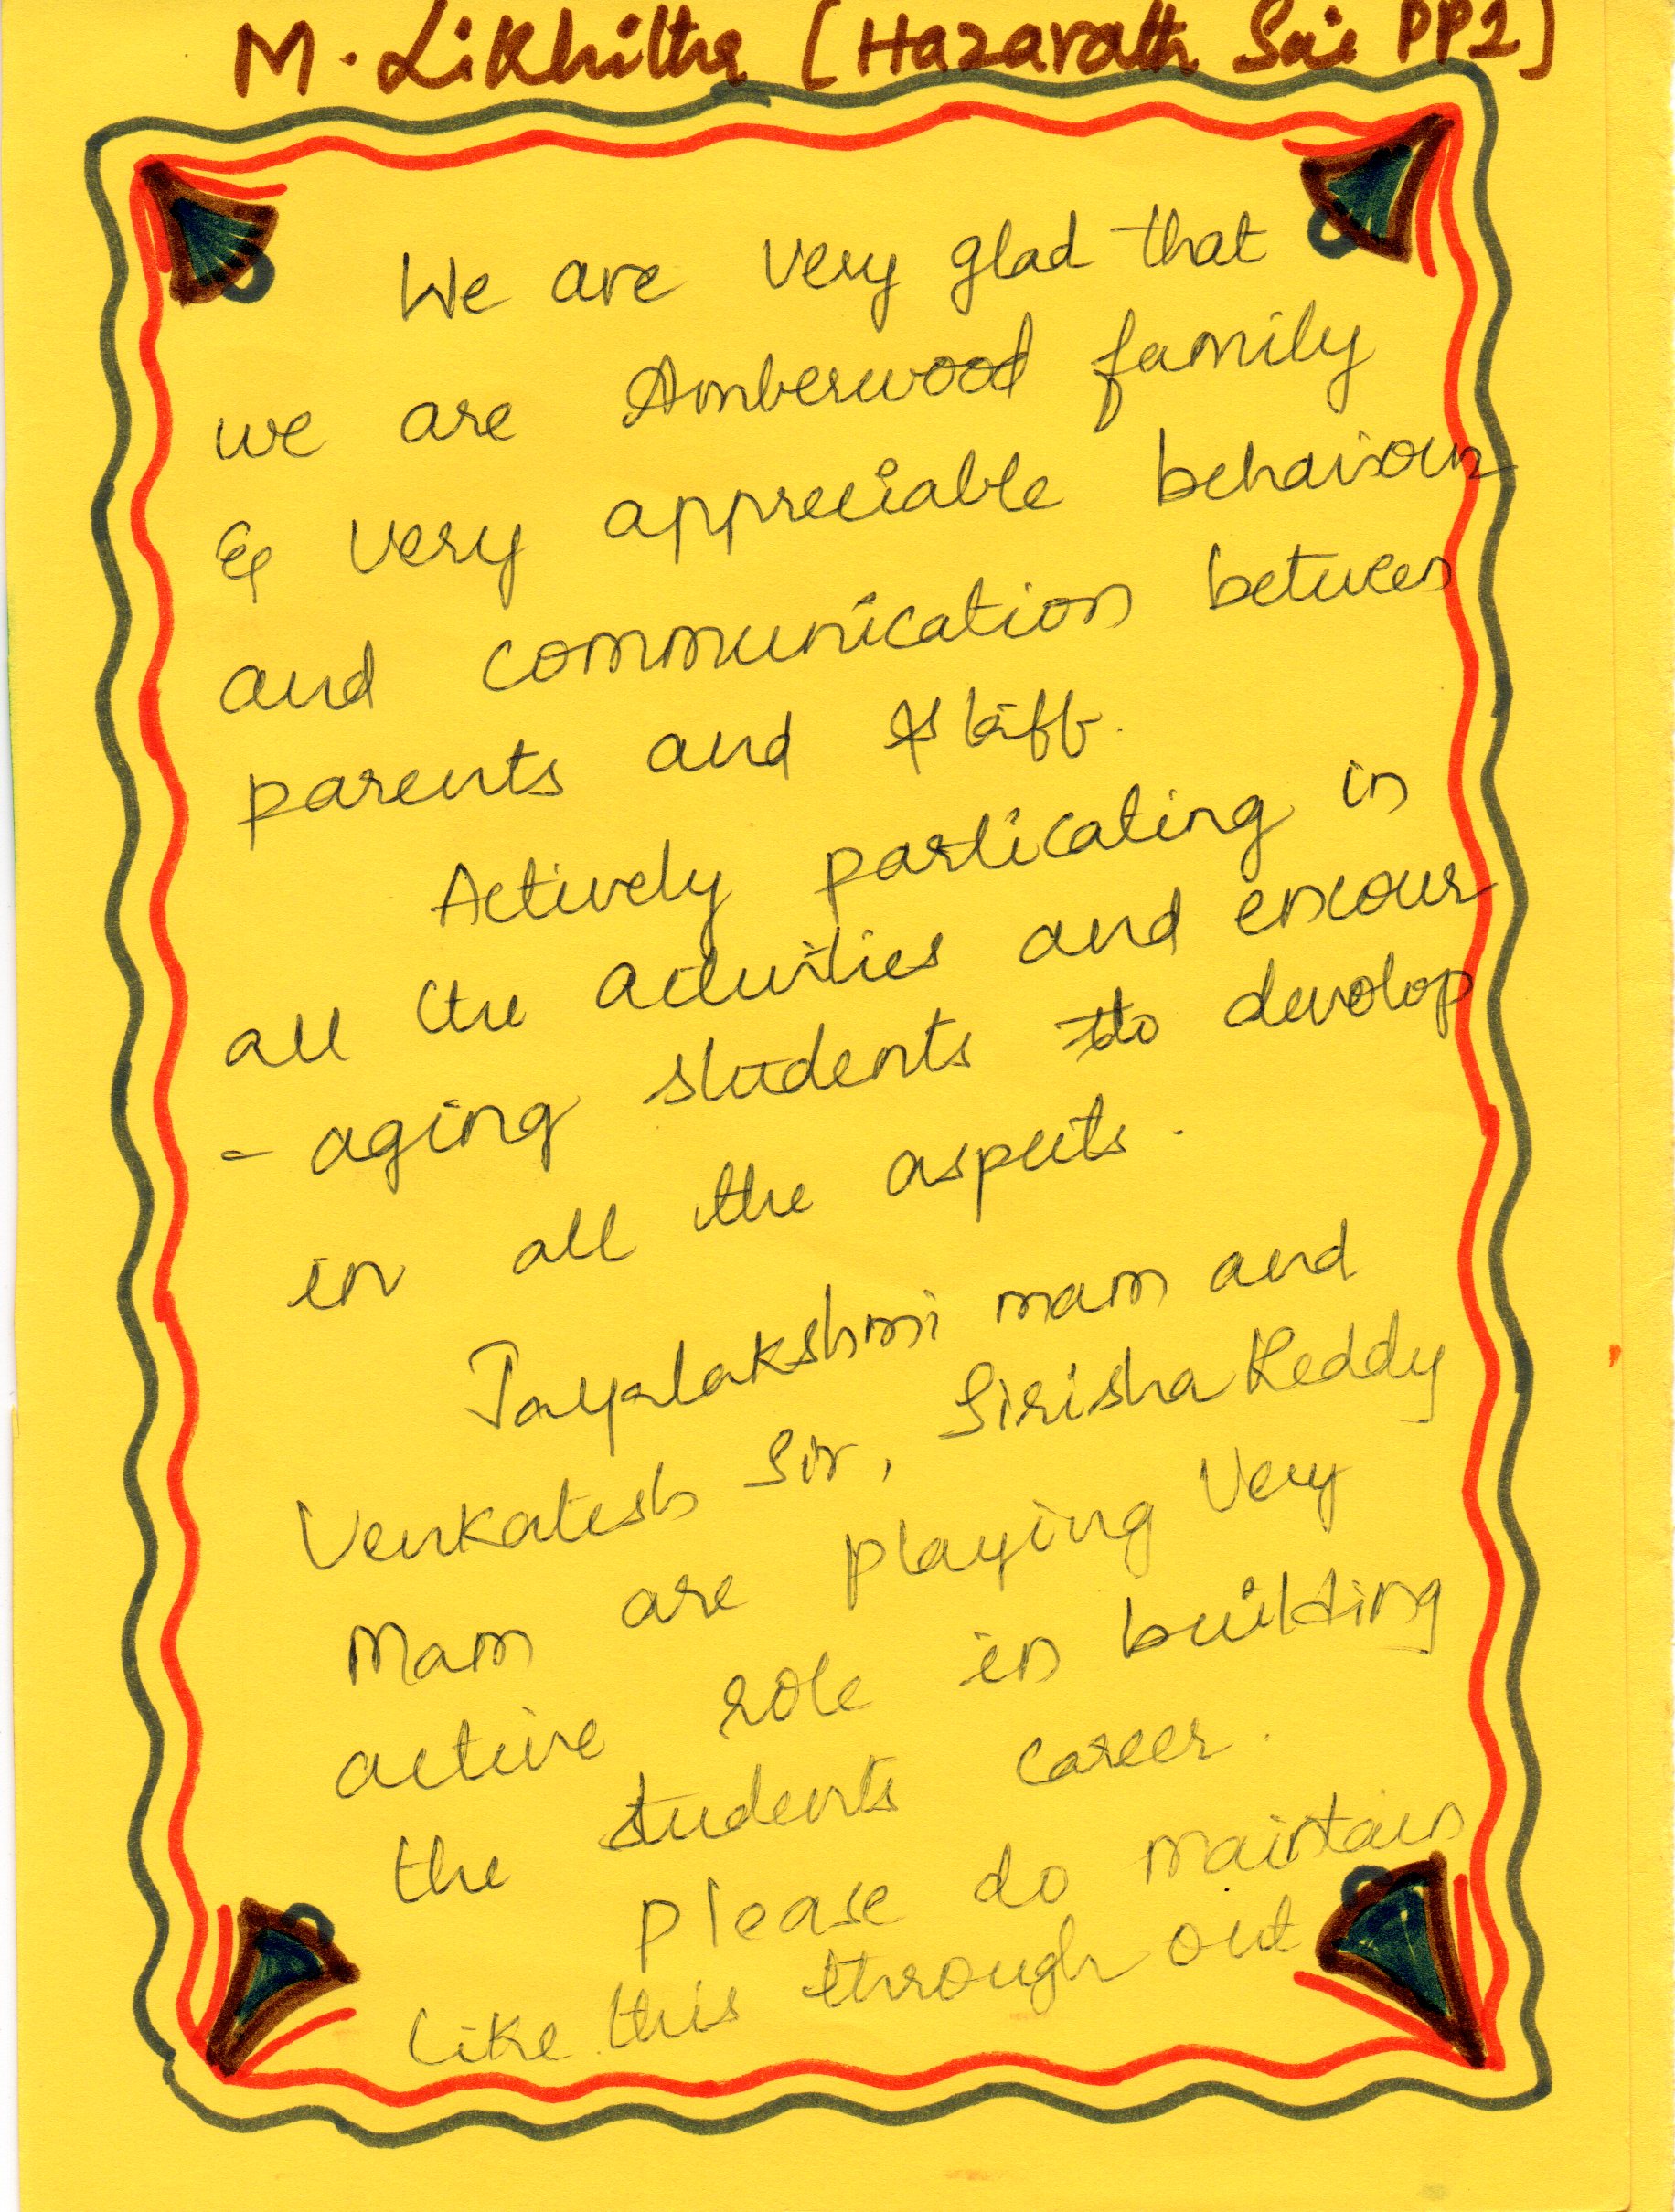 M. Likhitha [Hazarath Sai PP2]
We are very glad that
we are Amberwood family
& very appreciable behaviour
and communication between
parents and staff.
Actively particating in
all the activities and encour
- aging students to devolop
in all the aspects.
Jayalakshmi mam and
Venkatesh Sir, Sirisha Reddy
Mam are playing very
active role in building
the students career.
please do maintain
like this through out